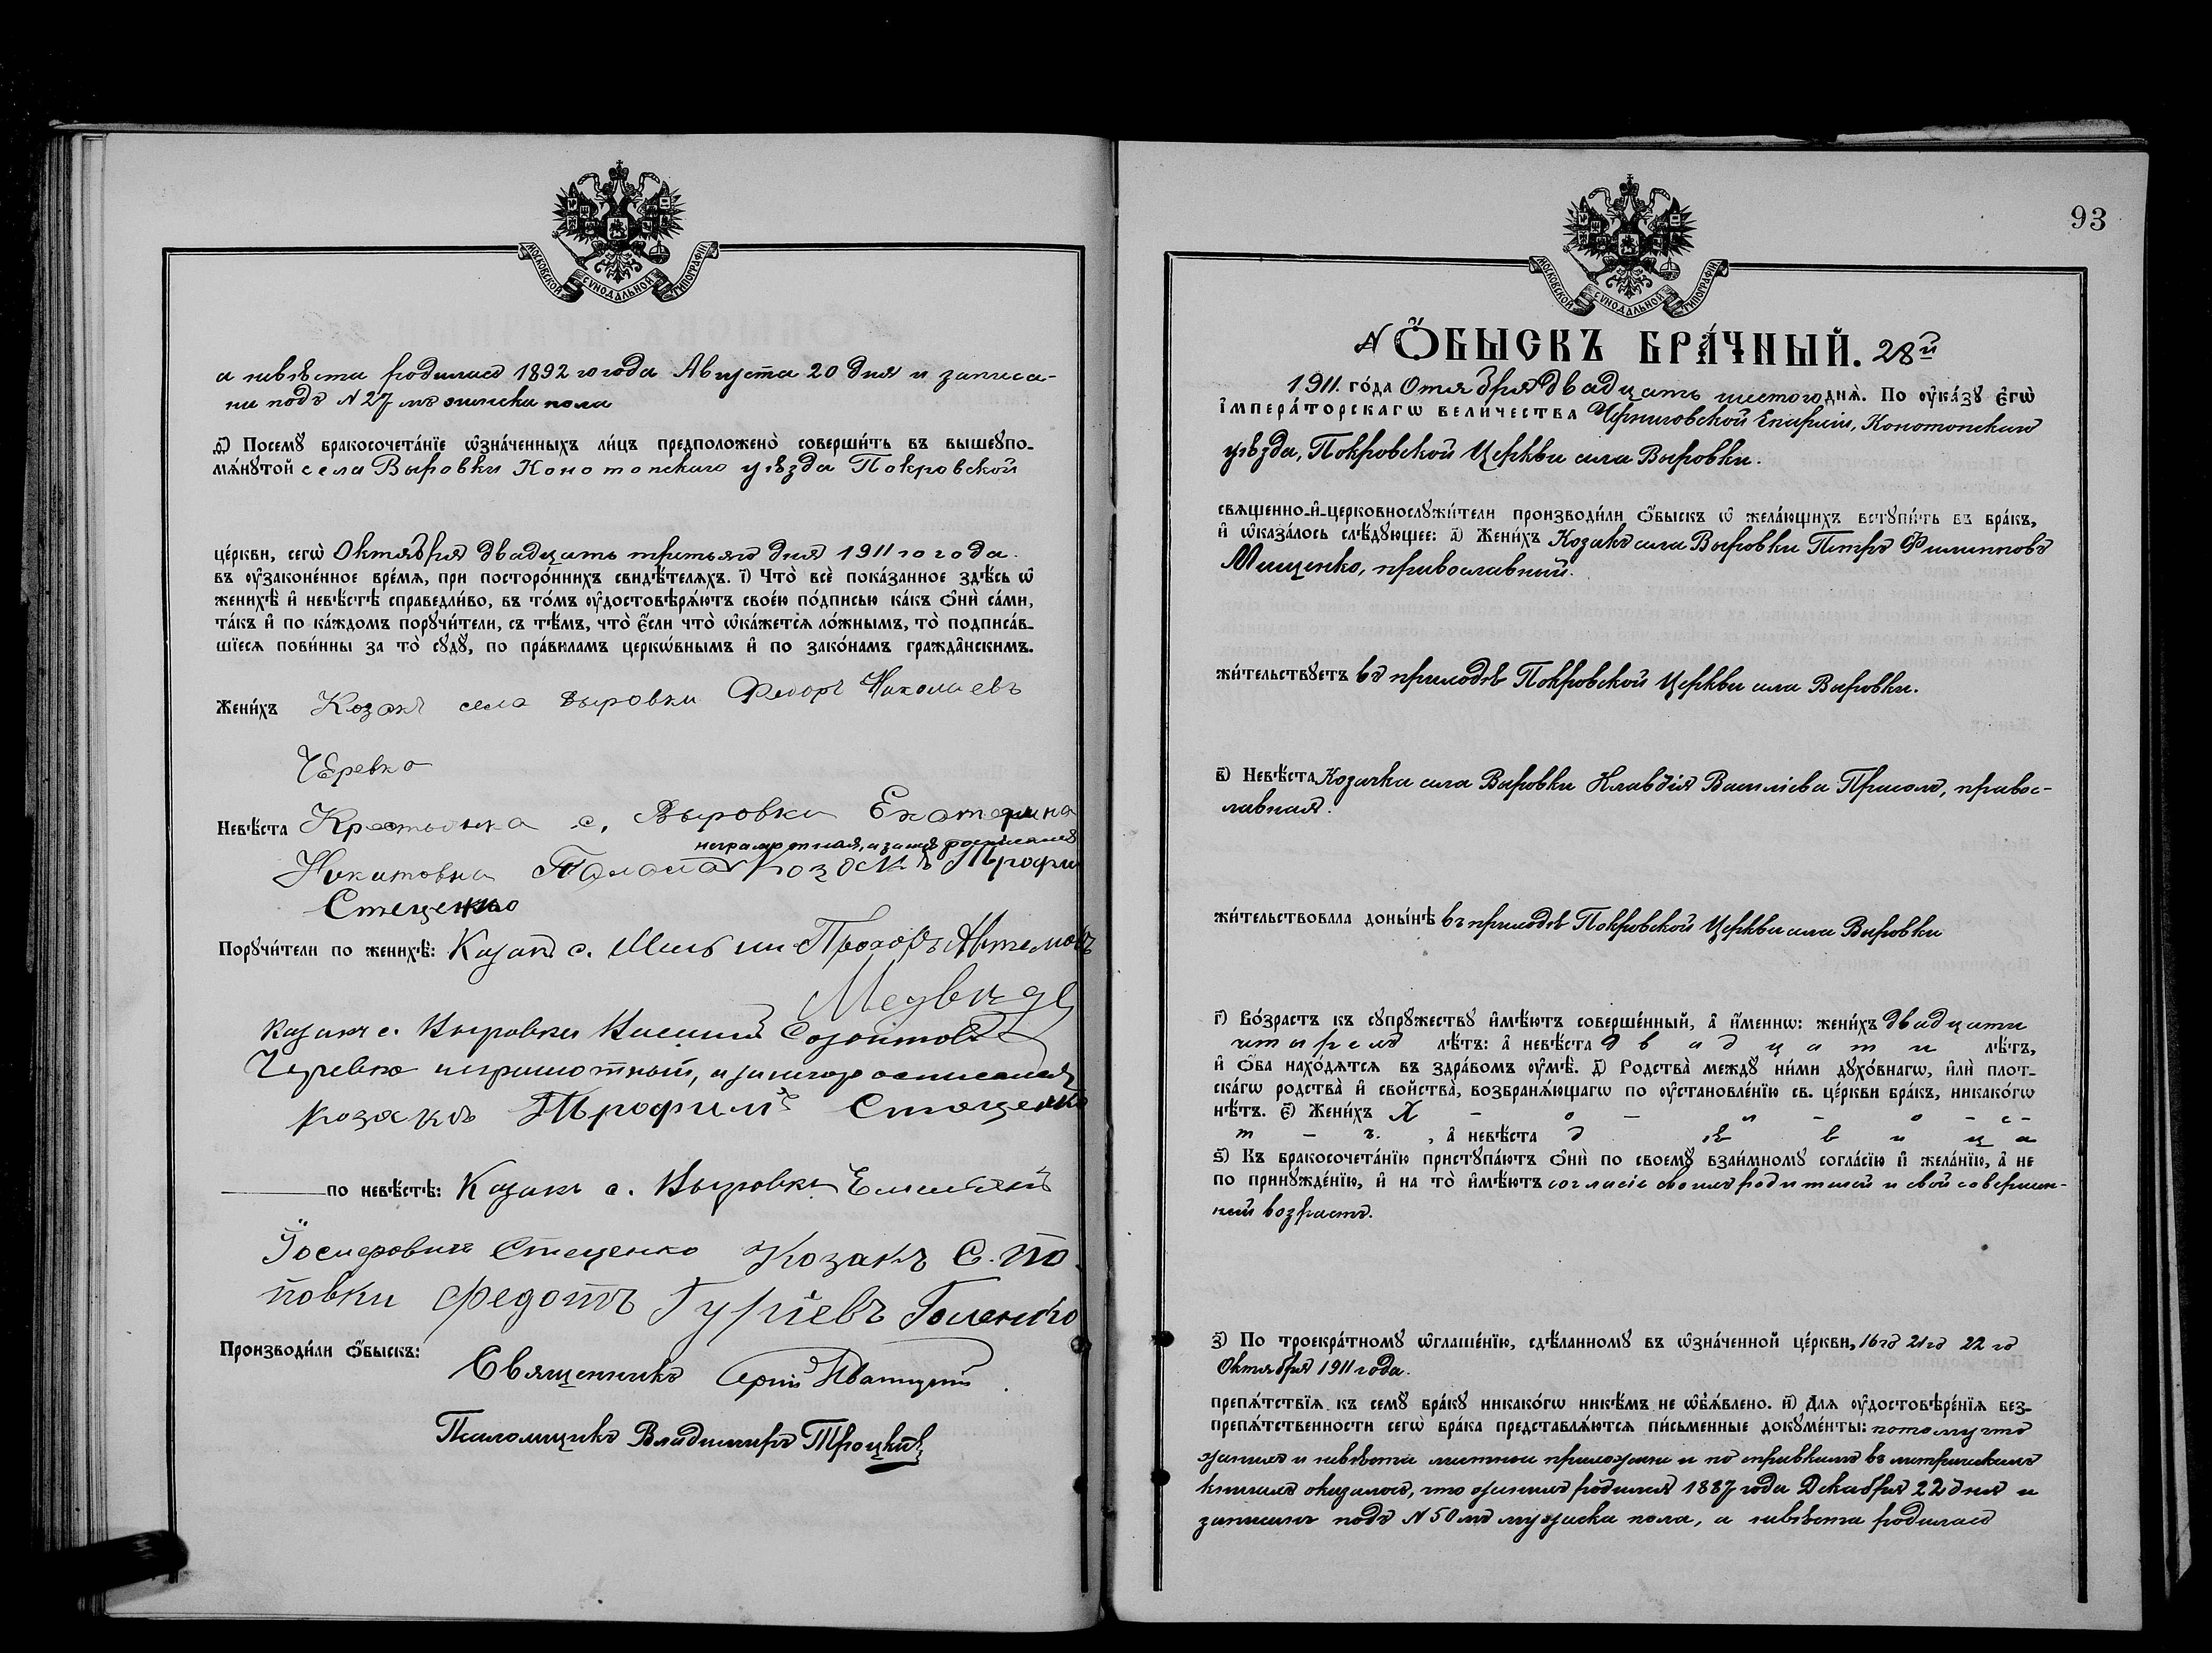 МОСКОВСКОЙ СѴНОДАЛЬНОЙ ТИПОГРАФІИ
а невѣста родилась 1892 го года Августа 20 дня и записа-
на подъ N 27 мъ женска пола
ѳ҃) Посемꙋ бракосочета́нїе ѡзна́ченныхъ ли́цъ предположено̀ соверши́ть въ вышеꙋпо-
мѧ́нꙋтой села Выровки Конотопскаго уѣзда Покровской
це́ркви, сегѡ̀ Октября двадцать третьяго дня 1911 го года.
въ оу҆законе́нное вре́мѧ, при посторо́ннихъ свидѣ́телѧхъ. і҃) Что̀ всѐ пока́занное здѣ́сь ѡ҆
женихѣ̀ и҆ невѣ́стѣ справедли́во, въ то́мъ оу҆достовѣрѧ́ютъ свое́ю по́дписью ка́къ ѻ҆нѝ са́ми,
та́къ и҆ по ка́ждомъ порꙋчи́тели, съ тѣ́мъ, что̀ є҆́сли что̀ ѡ҆ка́жетсѧ ло́жнымъ, то̀ подписа́в-
шїесѧ пови́нны за то̀ сꙋдꙋ̀, по пра́виламъ церко́внымъ и҆ по зако́намъ гражда́нскимъ.
Жени́хъ Козакъ села Выровки Федоръ Николаевъ
Черевко
Невѣ́ста Крестьянка с. Выровки Екатерина
неграмотная, и за нея росписался
Никитовна Козакъ Трофим
Стеценко
Порꙋчи́тели по женихѣ̀: Казакъ с. Прохоръ Артемовъ
Медвидь
Казакъ с. Выровки Василий Созонтовъ
Черевко неграмотный, а за него росписался
козакъ Трофимъ Стеценко
по невѣ́стѣ: Казакъ с. Выровки Емельянъ
Іосифовичъ Стеценко Козакъ С. По
повки Федотъ Гуріевъ Гоменко
Производи́ли ѻ҆́быскъ:
Священникъ Сергій
Псаломщикъ Владимиръ Троцкій
93
МОСКОВСКОЙ СѴНОДАЛЬНОЙ ТИПОГРАФІИ
N Ѻ҆́БЫСКЪ БРА́ЧНЫЙ. 28й
1911. го́да Октября двадцать шестого днѧ̀. По оу҆ка́зꙋ є҆гѡ̀
і҆мпера́торскагѡ вели́чества Черниговской Епархіи, Конотопскаго
уѣзда, Покровской Церкви села Выровки.
свѧщенно-и҆-церковнослꙋжи́тели производи́ли ѻ҆́быскъ ѡ҆ жела́ющихъ встꙋпи́ть въ бра́къ,
и҆ ѡ҆каза́лось слѣ́дꙋющее: а҃) Жени́хъ Козакъ села Выровки Петръ Филипповъ
Мищенко, православный.
жи́тельствꙋетъ въ приходѣ Покровской Церкви села Выровки.
в҃) Невѣ́ста Козачка села Выровки Клавдія Василіева Присолъ, правос-
лавная.
жи́тельствовала доны́нѣ въ приходѣ Покровской Церкви села Выровки
г҃) Во́зрастъ къ сꙋпрꙋ́жествꙋ и҆мѣ́ютъ соверше́нный, а҆ и҆́меннѡ: жени́хъ двадцати
четырехъ лѣ́тъ: а҆ невѣ́ста двадцати лѣ́тъ,
и҆ ѻ҆́ба нахо́дѧтсѧ въ здра́вомъ оу҆мѣ̀. д҃) Родства̀ междꙋ ни́ми дꙋхо́внагѡ, и҆лѝ плот-
ска́гѡ родства̀ и҆ свойства̀, возбранѧ́ющагѡ по оу҆становле́нїю св. це́ркви бра́къ, никако́гѡ
нѣ́тъ. є҃) Жени́хъ Х - о - л - о - с -
т - ъ. , а҆ невѣ́ста дѣвица
ѕ҃) Къ бракосочета́нїю пристꙋпа́ютъ ѻ҆нѝ по своемꙋ̀ взаи́мномꙋ согла́сїю и҆ жела́нїю, а҆ не
по принꙋжде́нїю, и҆ на то̀ и҆мѣ́ютъ согласіе своихъ родителей и свой совершен-
ный возрастъ.
з҃) По троекра́тномꙋ ѡ҆глаше́нїю, сдѣ́ланномꙋ въ ѡ҆зна́ченной це́ркви, 16го 21го 22 го
Октября 1911 года.
препѧ́тствїѧ къ семꙋ̀ бра́кꙋ никако́гѡ никѣ́мъ не ѡ҆б̾ѧ́влено. и҃) Длѧ оу҆достовѣре́нїѧ без-
препѧ́тственности сегѡ̀ бра́ка представлѧ́ютсѧ пи́сьменные докꙋме́нты: потому что
женихъ и невѣста местные прихожане и по справкамъ въ метрическихъ
книгахъ оказалось, что женихъ родился 1887 года Декабря 22 дня и
записанъ подъ N 50 мъ мужеска пола, а невѣста родилась